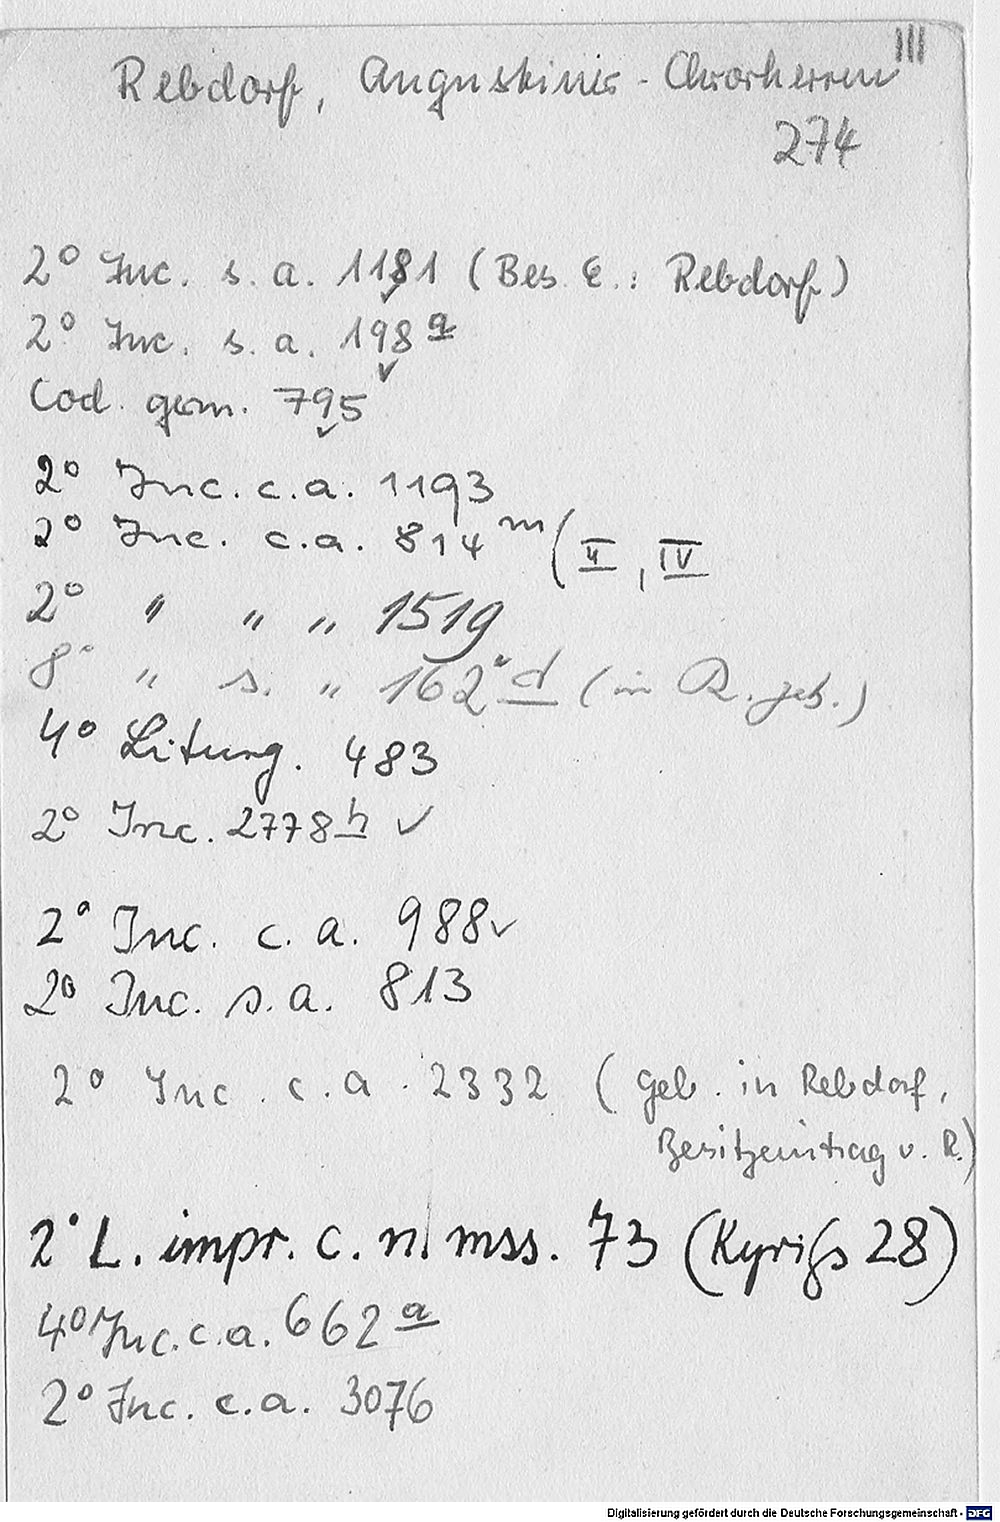 III
Rebdorf, Augustiner-Chorherren
274
2° Inc. s. a. 1181 (Bes. E.: Rebdorf)
2° Inc. s. a. 198 a
Cod. germ. 795
2° Inc. c. a. 1193
2° Inc. c. a. 814 m (II, IV
2° " " " 1519
8° " s. " 162 d (in R. geb.)
4° Liturg. 483
2° Inc. 2778 h ✓
2° Inc. c. a. 988 ✓
2° Inc. s. a. 813
2° Inc. c. a. 2332 (geb. in Rebdorf,
Besitzeintrag v. R.)
2° L. impr. c. n. mss. 73 (Kyriß 28)
4° Inc. c. a. 662 a
2° Inc. c. a. 3076
Digitalisierung gefördert durch die Deutsche Forschungsgemeinschaft - DFG